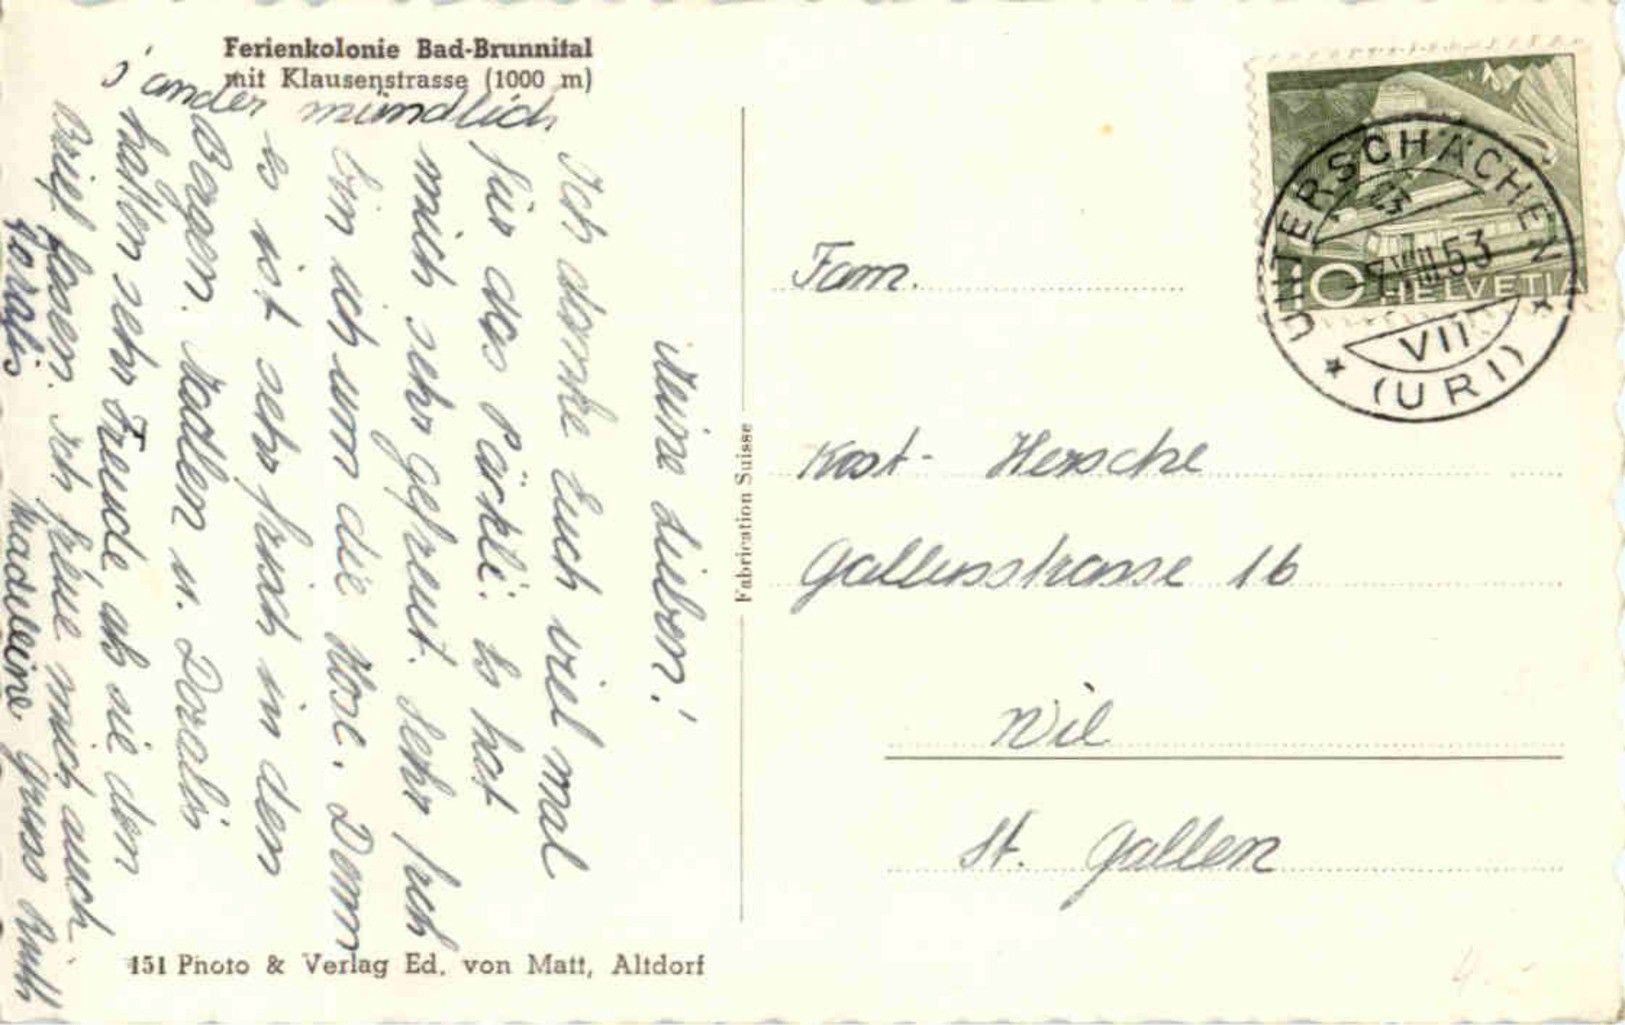 Ferienkolonie Bad-Brunnital
mit Klausenstrasse (1000 m)
s'ander mündlich
Meine Lieben!
Ich danke Euch viel mal
für das Päckli. Es hat
mich sehr gefreut. Sehr froh
bin ich um die Hose. Denn
es ist sehr frisch in den
Bergen. Madlen u. Doralis
hatten sehr Freude, als sie den
Brief lasen. Ich freue mich auch
Doralis Madeleine Gruss Ruth
Fabrication Suisse
151 Photo & Verlag Ed. von Matt, Altdorf
HELVETIA
10
UNTERSCHÄCHEN
VIII 53
VII
(URI)
Fam.
Kost-Hersche
Gallusstrasse 16
Wil
St. Gallen